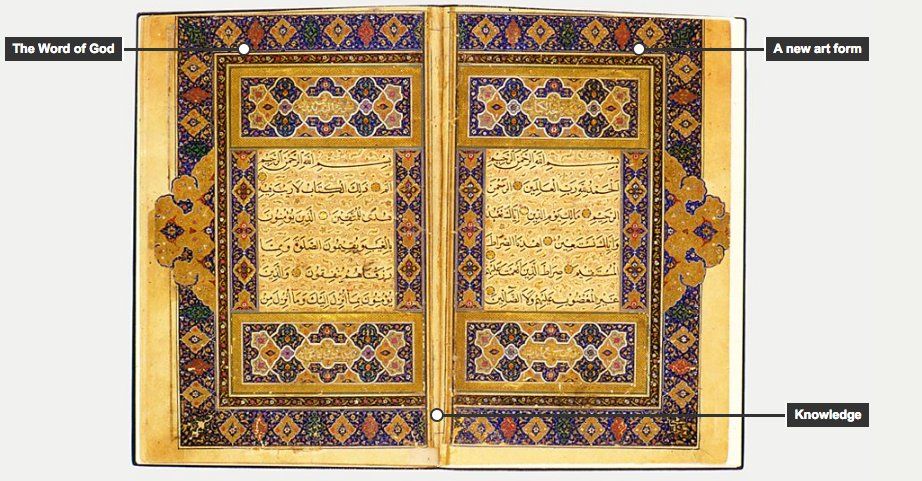 The Word of God
A new art form
بسم الله الرحمن الرحيم
الحمد لله رب العالمين الرحمن
الرحيم مالك يوم الدين اياك نعبد
واياك نستعين اهدنا الصراط
المستقيم صراط الذين انعمت عليهم
غير المغضوب عليهم ولا الضالين
بسم الله الرحمن الرحيم
الم ذلك الكتاب لا ريب فيه
هدى للمتقين الذين يؤمنون
بالغيب ويقيمون الصلوة ومما
رزقناهم ينفقون والذين
يؤمنون بما انزل اليك وما انزل من
Knowledge